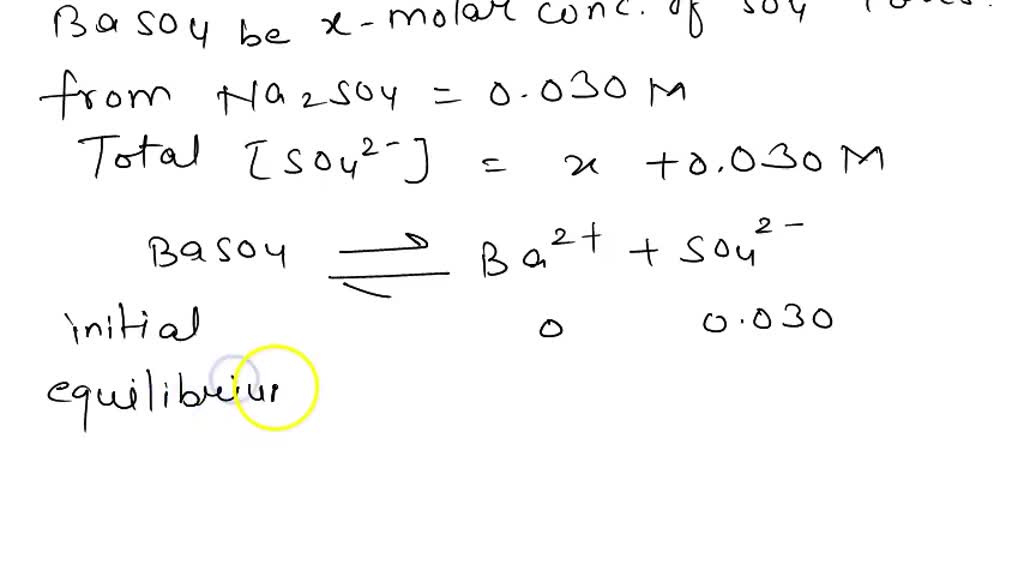 BaSO4 be x-molar conc. of SO4
from Na2SO4 = 0.030 M
Total [SO4 2-] = x + 0.030 M
BaSO4 ⇌ Ba2+ + SO4 2-
initial 0 0.030
equilibriu